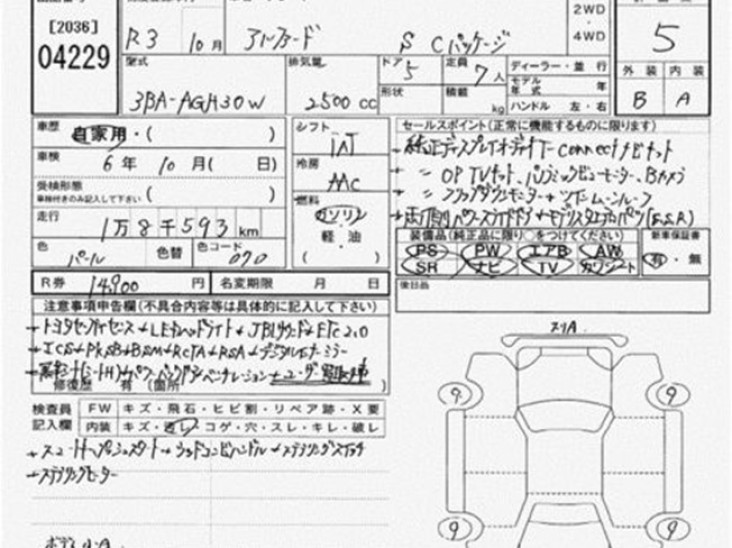 [2036]
04229
R3 10月
アルファード S Cパッケージ
2WD
・
4WD
5
型式
3BA-AGH30W
排気量
2500 cc
ドア
5
形状
定員
7人
積載
kg
ディーラー・並 行
モデル
年 式
年
ハンドル 左・右
外 装 内 装
B A
車歴
自家用・( )
車検
6年 10月( 日)
受検形態
車検付きのみ記入して下さい ( )
走行
1万8千593 km
色
パール
色替
色コード
070
シフト
IAT
冷房
AAC
燃料
ガソリン
軽・油
( )
セールスポイント(正常に機能するものに限ります)
純正ディスプレイオーディオ T-connectナビキット
〃 OP TVキット、パノラミックビューモニター、Bカメラ
〃 フリップダウンモニター ツインムーンルーフ
装備品(純正品に限り○をつけてください)
PS PW エアB AW
SR ナビ TV カワシート
新車保証書
有・無
後日品
R券 14,900 円 名変期限 月 日
注意事項申告欄(不具合内容等は具体的に記入して下さい)
トヨタセーフティセンス LEDヘッドライト JBLサウンド ETC2.0
ICS PKSB BSM RCTA RSA デジタルインナーミラー
修復歴 有 (箇所 )
検査員
記入欄
FW キズ・飛石・ヒビ割・リペア跡・X要
内装 キズ・汚レ・コゲ・穴・スレ・キレ・破レ
スマートキープッシュスタート ウッドコンビハンドル ステアリングスイッチ
ステアリングヒーター
スリA
9 9
9 9